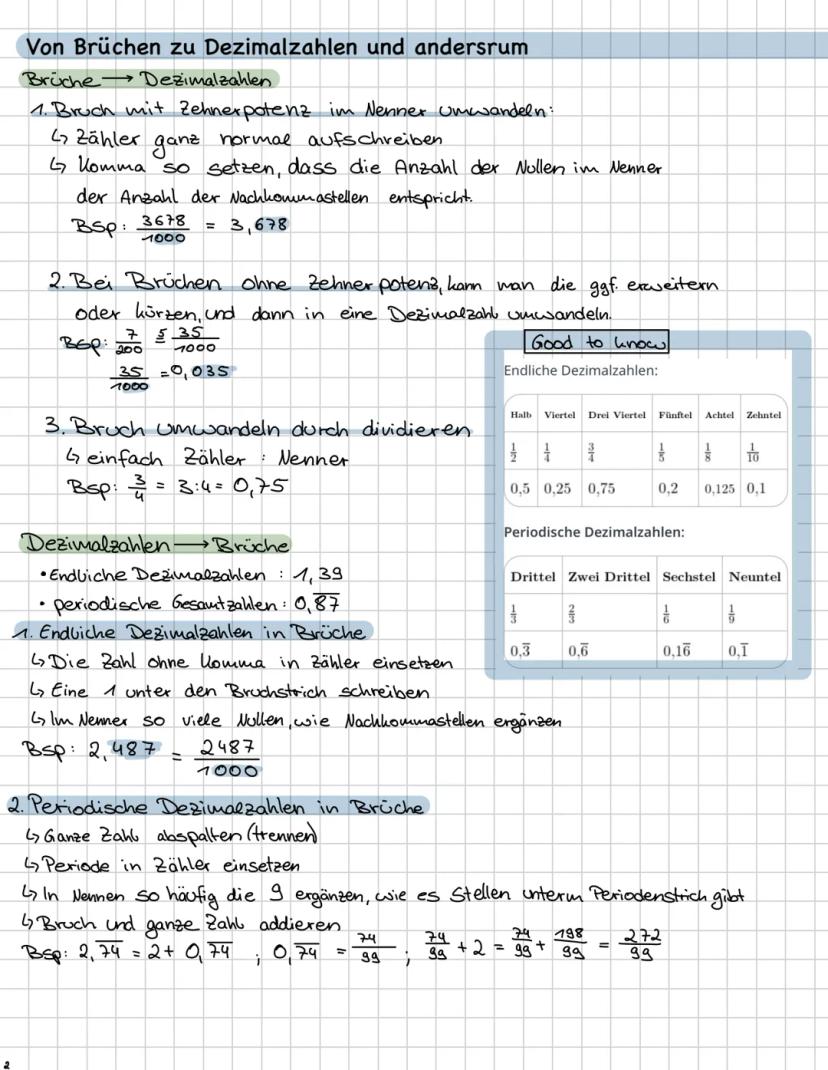 Von Brüchen zu Dezimalzahlen und andersrum
Brüche → Dezimalzahlen
1. Bruch mit Zehnerpotenz im Nenner umwandeln:
↳ Zähler ganz normal aufschreiben
↳ Komma so setzen, dass die Anzahl der Nullen im Nenner
der Anzahl der Nachkommastellen entspricht.
BSp: 3678/1000 = 3,678
2. Bei Brüchen ohne Zehnerpotenz, kann man die ggf. erweitern
oder kürzen, und dann in eine Dezimalzahl umwandeln.
BSp: 7/200 5= 35/1000
35/1000 = 0,035
3. Bruch umwandeln durch dividieren
↳ einfach Zähler : Nenner
BSp: 3/4 = 3:4 = 0,75
Good to know
Endliche Dezimalzahlen:
Halb Viertel Drei Viertel Fünftel Achtel Zehntel
1/2 1/4 3/4 1/5 1/8 1/10
0,5 0,25 0,75 0,2 0,125 0,1
Periodische Dezimalzahlen:
Drittel Zwei Drittel Sechstel Neuntel
1/3 2/3 1/6 1/9
0,3̅ 0,6̅ 0,16̅ 0,1̅
Dezimalzahlen → Brüche
• Endliche Dezimalzahlen : 1,39
• periodische Gesamtzahlen: 0,8̅7̅
1. Endliche Dezimalzahlen in Brüche
↳ Die Zahl ohne Komma in Zähler einsetzen
↳ Eine 1 unter den Bruchstrich schreiben
↳ Im Nenner so viele Nullen, wie Nachkommastellen ergänzen
BSp: 2,487 = 2487/1000
2. Periodische Dezimalzahlen in Brüche
↳ Ganze Zahl abspalten (trennen)
↳ Periode in Zähler einsetzen
↳ In Nennen so häufig die 9 ergänzen, wie es Stellen unterm Periodenstrich gibt
↳ Bruch und ganze Zahl addieren
BSp: 2,7̅4̅ = 2 + 0,7̅4̅ ; 0,7̅4̅ = 74/99 ; 74/99 + 2 = 74/99 + 198/99 = 272/99
2